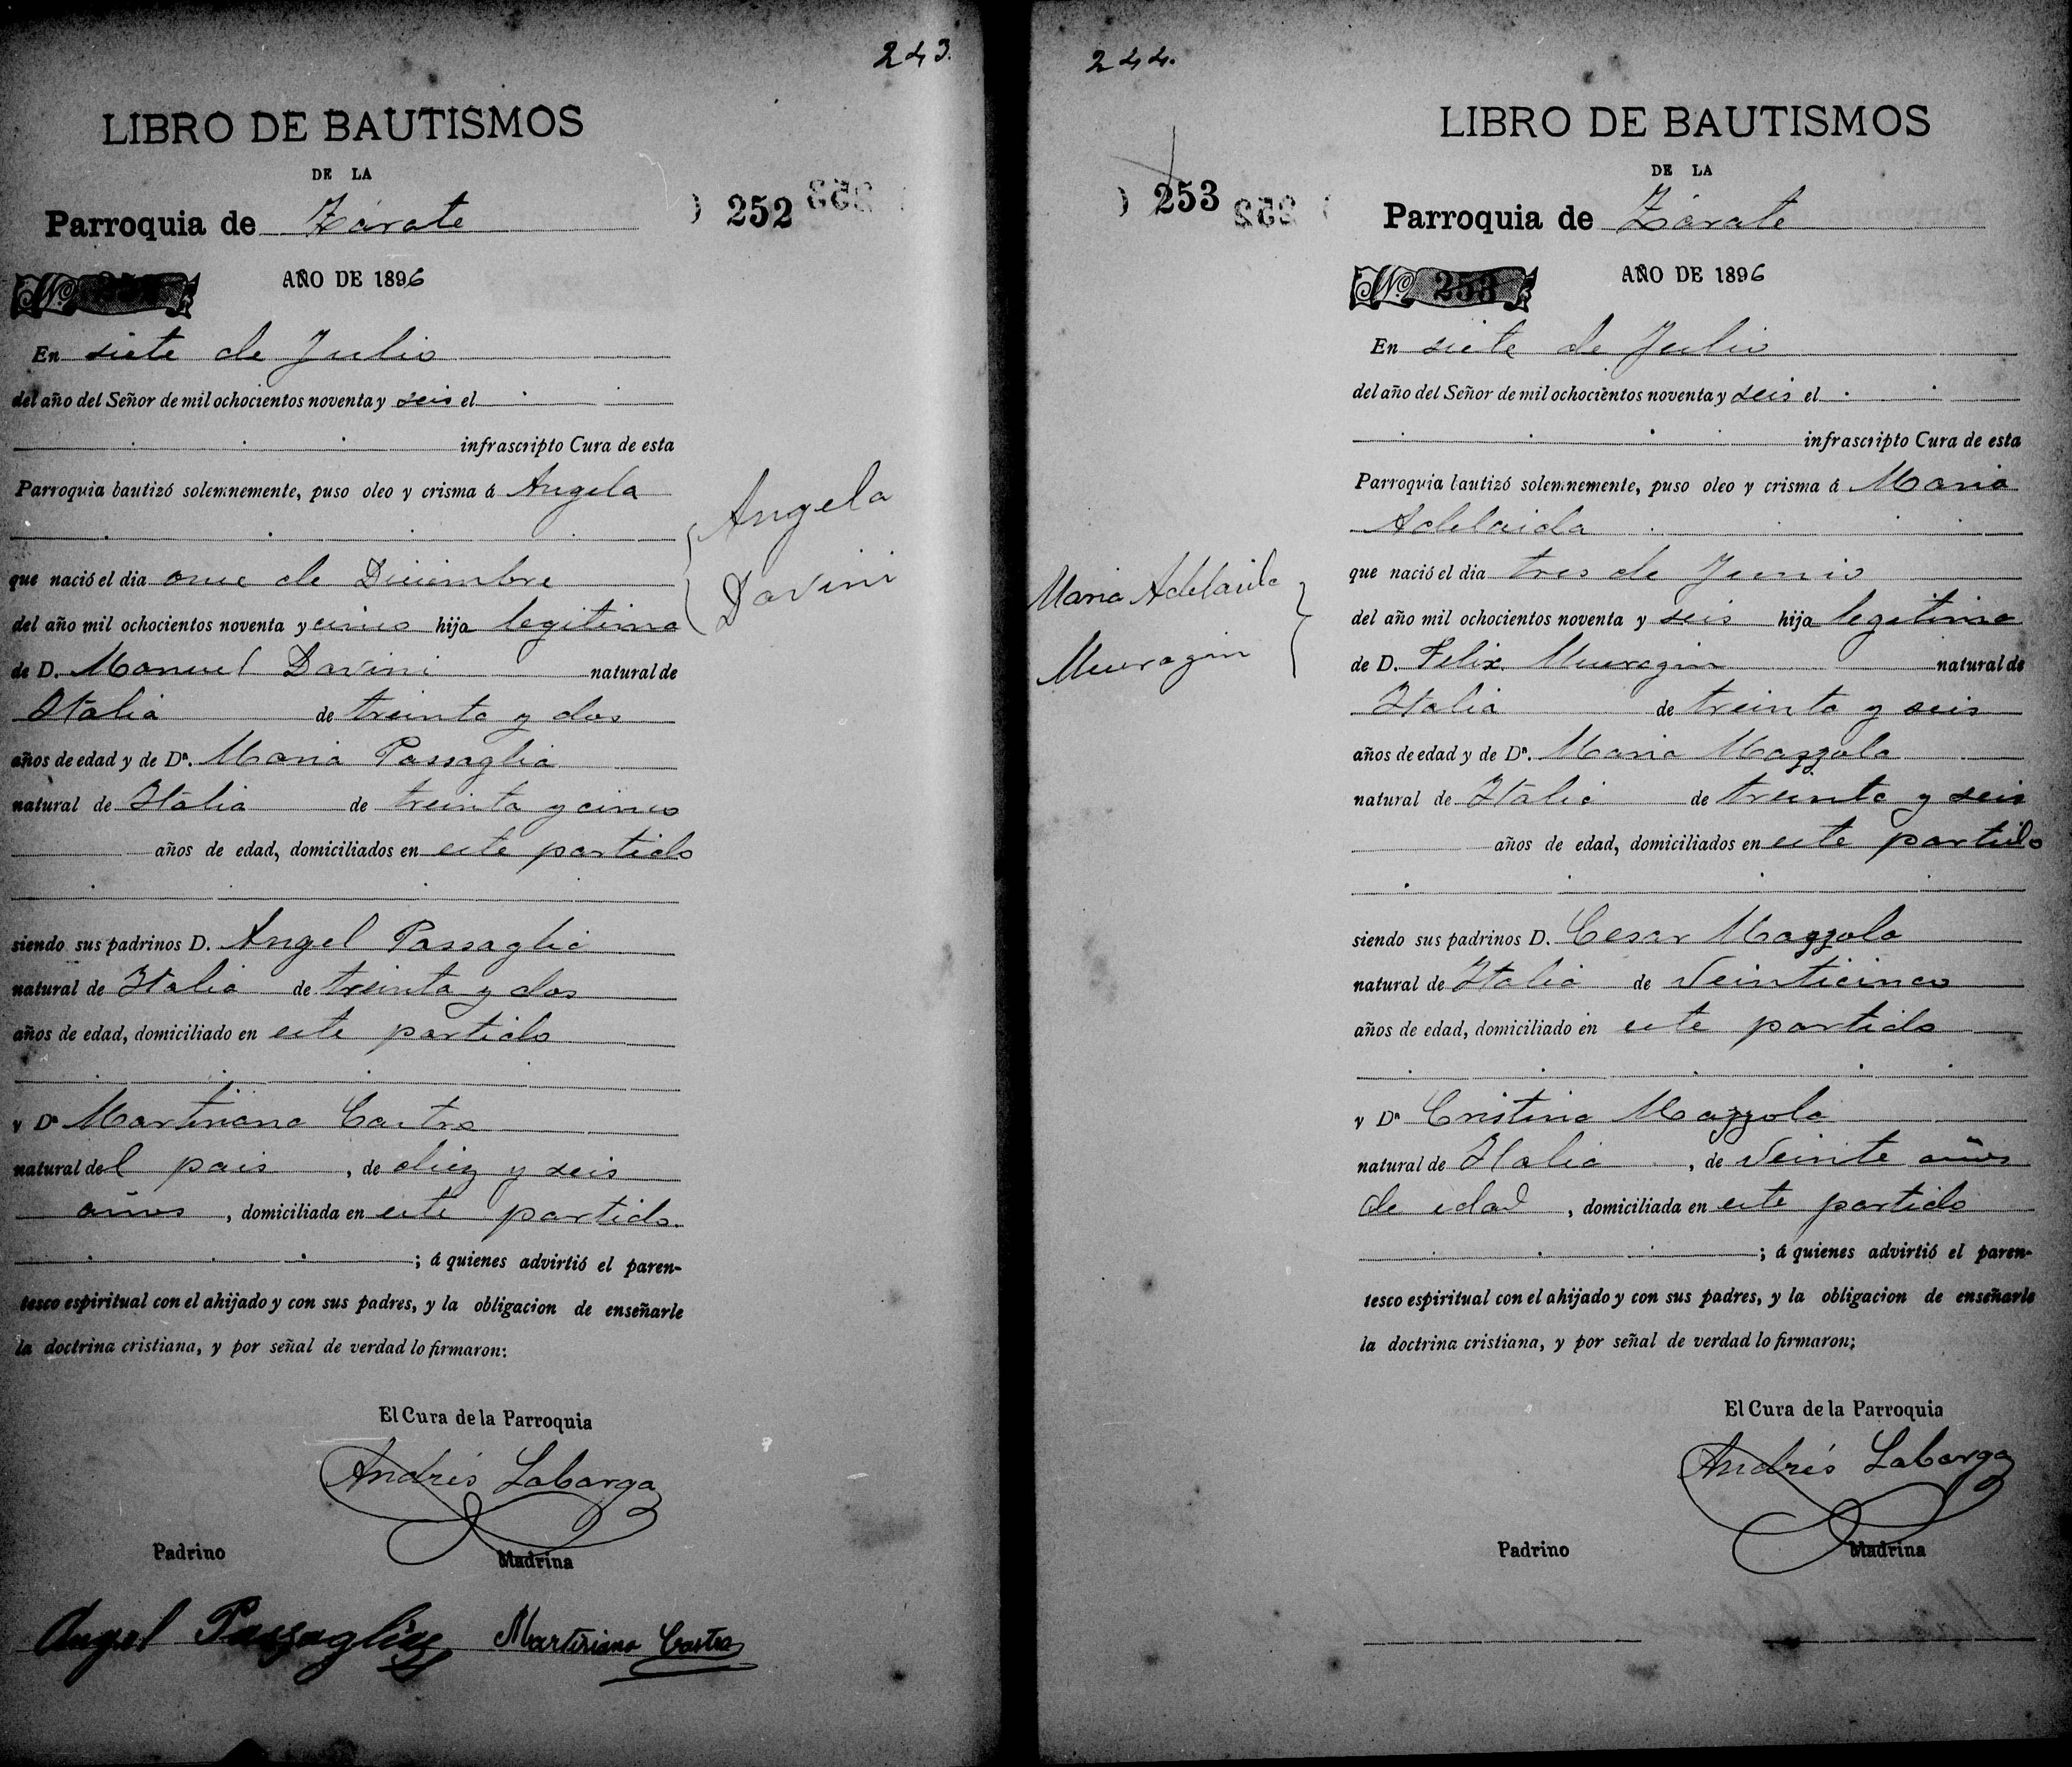 243.
LIBRO DE BAUTISMOS
DE LA
Parroquia de Zárate
) 252
Nº
AÑO DE 1896
En siete de Julio
del año del Señor de mil ochocientos noventa y seis el
infrascripto Cura de esta
Parroquia bautizó solemnemente, puso oleo y crisma á Angela
Angela
Davini
que nació el dia once de Diciembre
del año mil ochocientos noventa y cinco hija legitima
de D. Manuel Davini natural de
Italia de treinta y dos
años de edad y de Dª. Maria Passaglia
natural de Italia de treinta y cinco
años de edad, domiciliados en este partido
siendo sus padrinos D. Angel Passaglia
natural de Italia de treinta y dos
años de edad, domiciliado en este partido
y Dª Martiriana Castro
natural del pais , de diez y seis
años , domiciliada en este partido.
; á quienes advirtió el paren-
tesco espiritual con el ahijado y con sus padres, y la obligacion de enseñarle
la doctrina cristiana, y por señal de verdad lo firmaron:
El Cura de la Parroquia
Andrés Labarga
Padrino
Madrina
Angel Passaglia Martiriana Castro
244.
LIBRO DE BAUTISMOS
DE LA
) 253
Parroquia de Zárate
Nº 253
AÑO DE 1896
En siete de Julio
del año del Señor de mil ochocientos noventa y seis el
infrascripto Cura de esta
Parroquia bautizó solemnemente, puso oleo y crisma á Maria
Adelaida
que nació el dia tres de Junio
Maria Adelaida
del año mil ochocientos noventa y seis hija legitima
de D. Felix natural de
Italia de treinta y seis
años de edad y de Dª. Maria Mazzola
natural de Italia de treinta y seis
años de edad, domiciliados en este partido
siendo sus padrinos D. Cesar Mazzola
natural de Italia de Veinticinco
años de edad, domiciliado en este partido
y Dª Cristina Mazzola
natural de Italia , de Veinte años
de edad , domiciliada en este partido
; á quienes advirtió el paren-
tesco espiritual con el ahijado y con sus padres, y la obligacion de enseñarle
la doctrina cristiana, y por señal de verdad lo firmaron;
El Cura de la Parroquia
Andrés Labarga
Padrino
Madrina